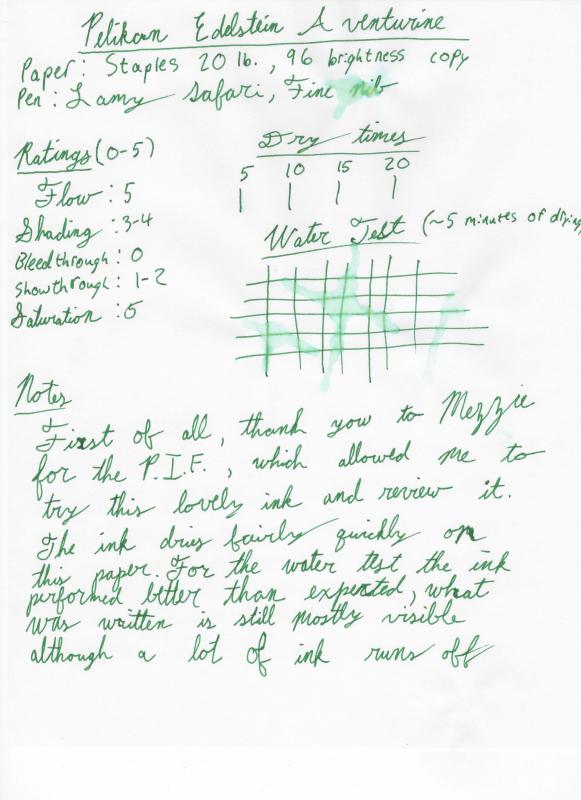 Pelikan Edelstein Aventurine
Paper: Staples 20 lb., 96 brightness copy
Pen: Lamy Safari, Fine nib
Ratings (0-5)
Flow: 5
Shading: 3-4
Bleedthrough: 0
Showthrough: 1-2
Saturation: 5
Dry times
5 10 15 20
Water Test (~5 minutes of drying
Notes
First of all, thank you to Mezzie
for the P.I.F., which allowed me to
try this lovely ink and review it.
The ink dries fairly quickly on
this paper. For the water test the ink
performed better than expected, what
was written is still mostly visible
although a lot of ink runs off